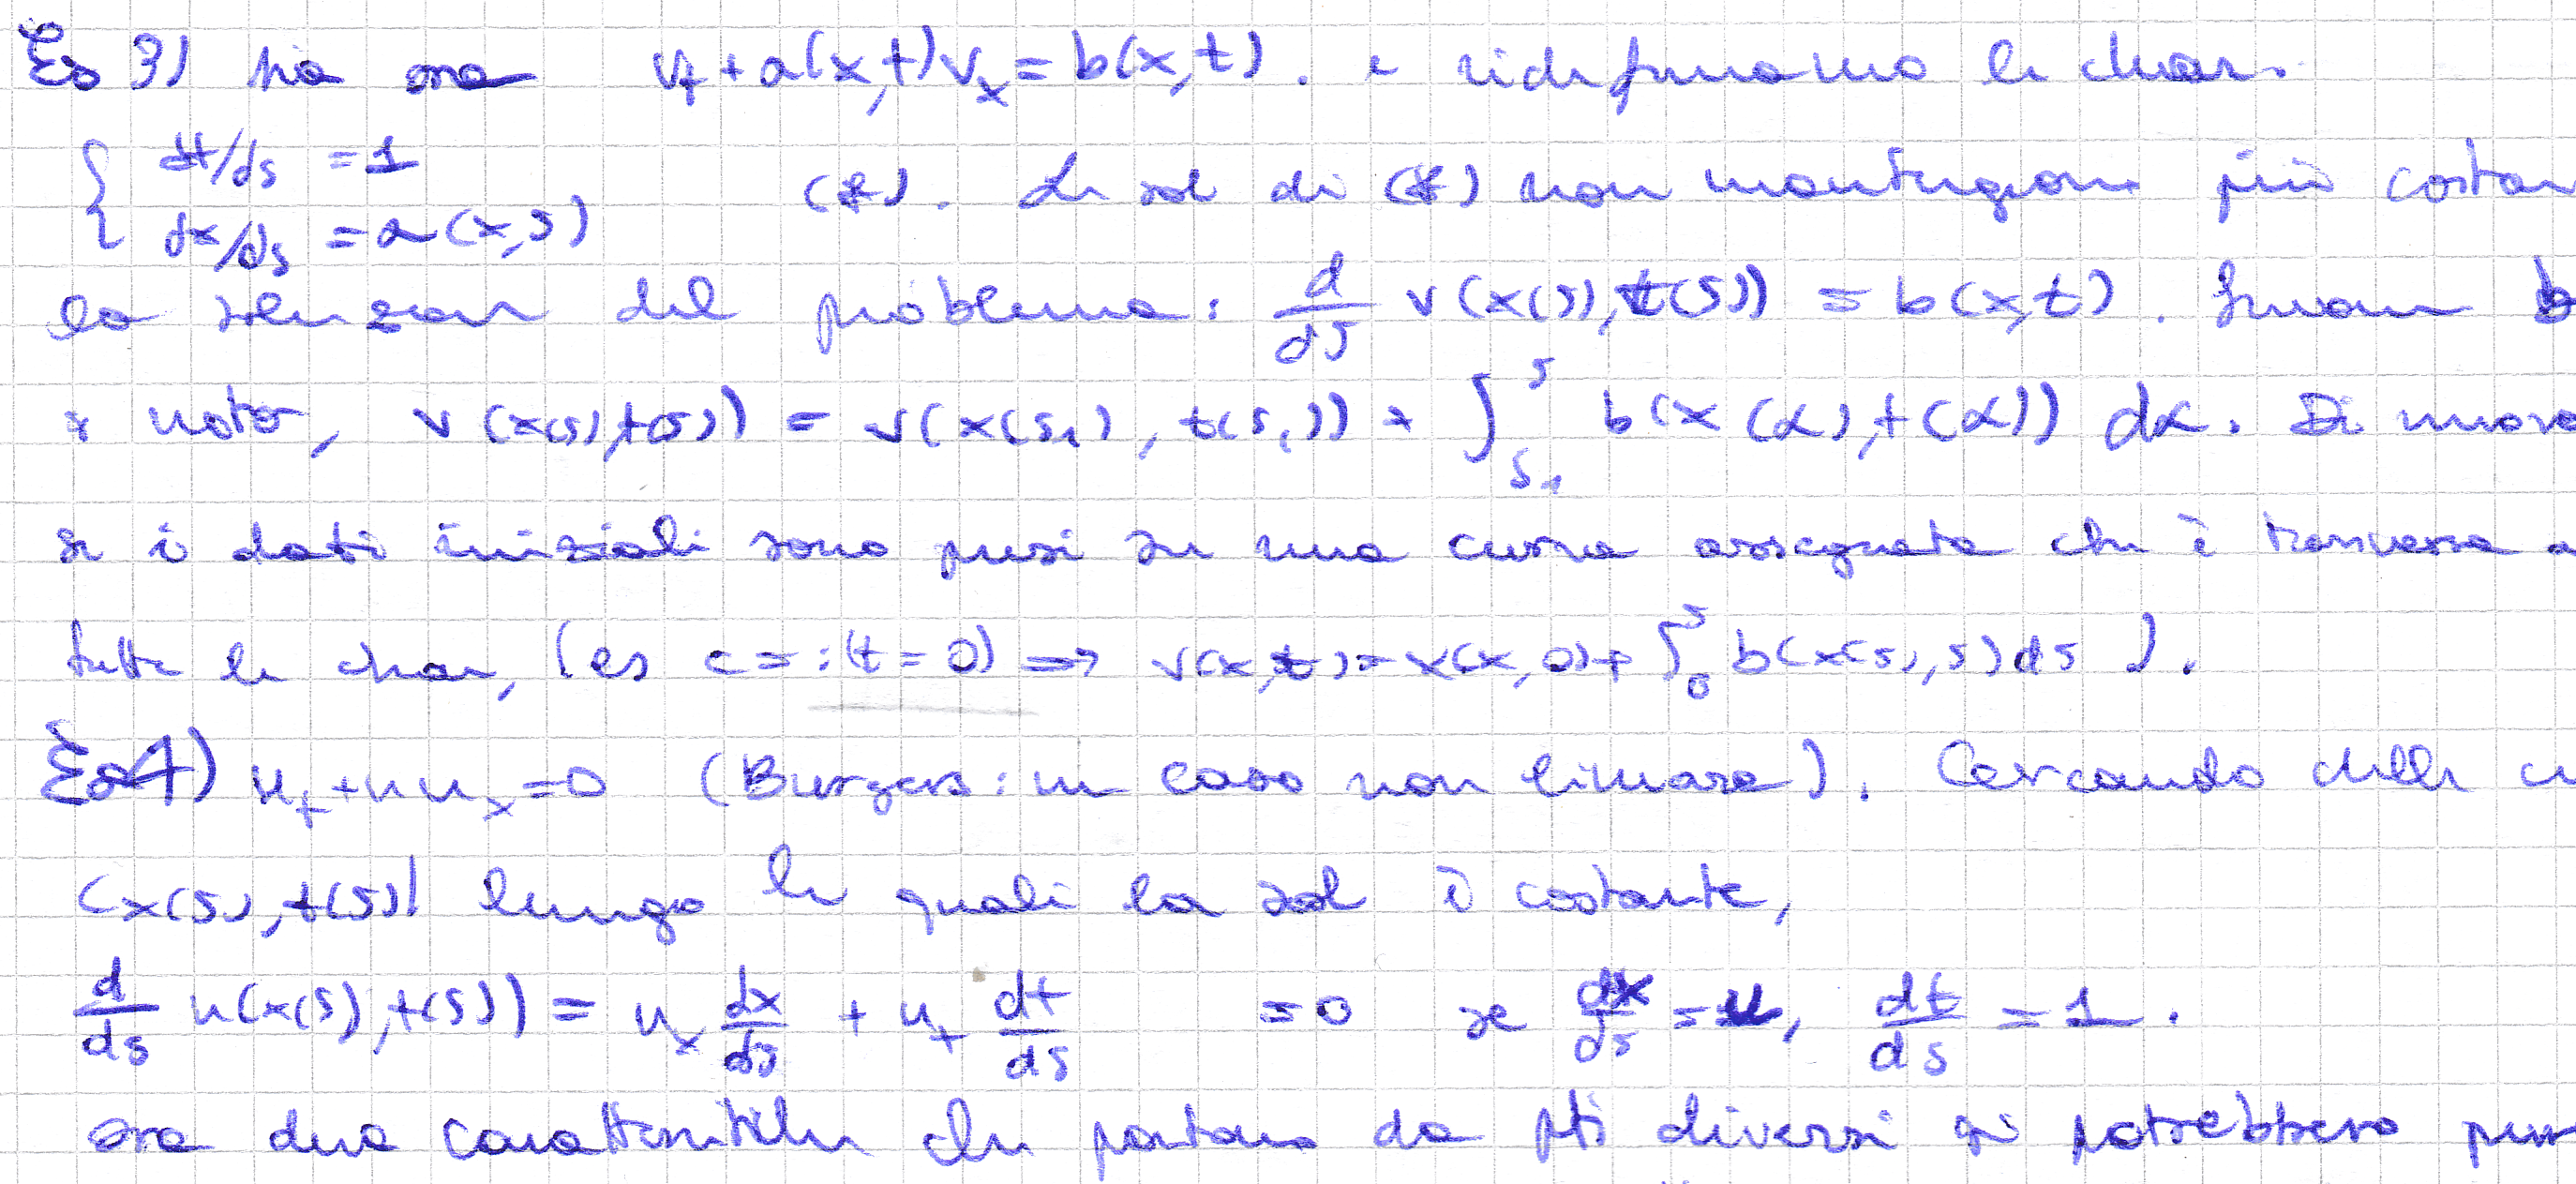 Es 3) sia ora v_t + a(x,t) v_x = b(x,t). e ridefiniamo le char.
{ dt/ds = 1
dx/ds = a(x,s) (*). Le sol di (*) non mantengono più costan
la soluzione del problema: d/ds v(x(s),t(s)) = b(x,t). b
è noto, v(x(s),t(s)) = v(x(s₁), t(s₁)) + ∫_{s₁}^{s} b(x(α),t(α)) dα. Di nuovo
se i dati iniziali sono presi su una curva assegnata che è trasversa a
tutte le char, (es c =: (t = 0) ⟹ v(x,t) = v(x,0) + ∫_0^s b(x(s),s) ds ).
Es 4) u_t + u u_x = 0 (Burgers: un caso non lineare). Cercando delle cu
(x(s),t(s)) lungo le quali la sol è costante,
d/ds u(x(s),t(s)) = u_x dx/ds + u_t dt/ds = 0 se dx/ds = u, dt/ds = 1.
ora due caratteristiche che partono da pti diversi si potrebbero